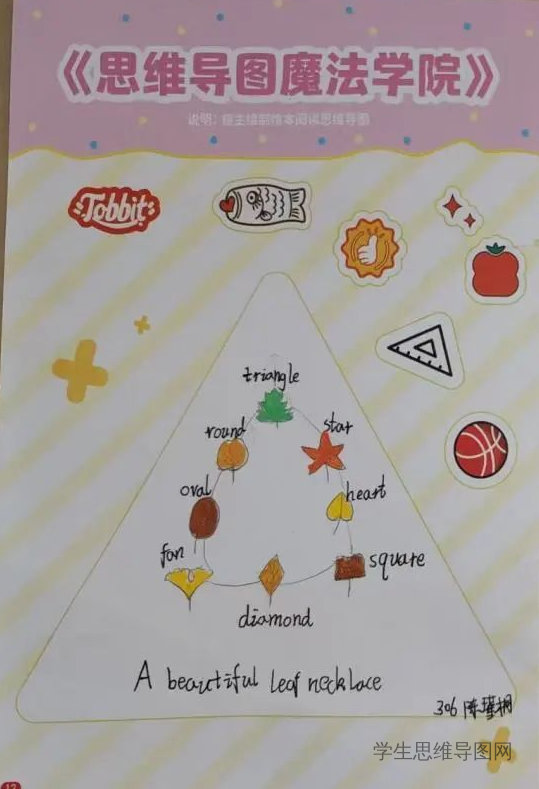 《思维导图魔法学院》
说明：自主绘制绘本阅读思维导图
Tobbit
triangle
round
star
oval
heart
fan
square
diamond
A beautiful leaf necklace
306 陈瑾桐
学生思维导图网
12